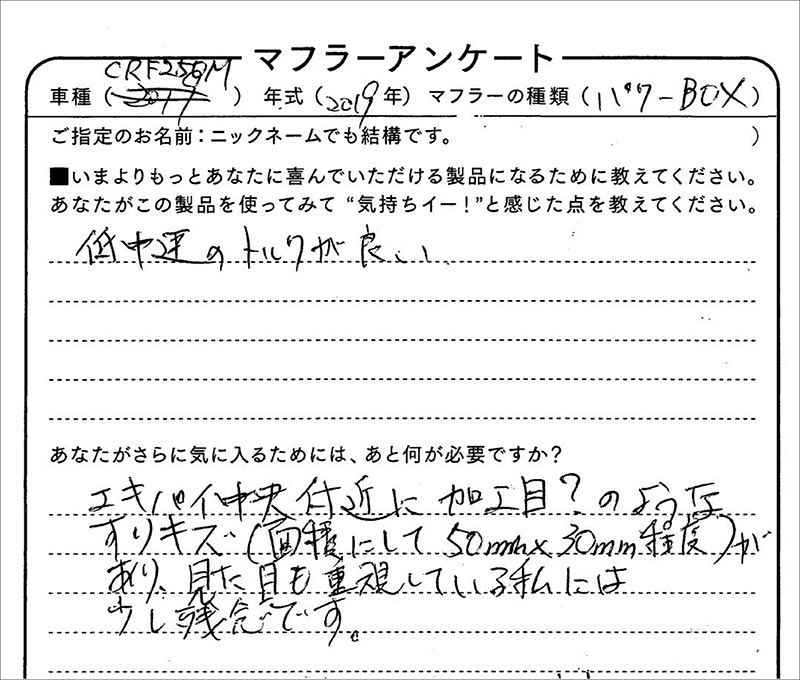 マフラーアンケート
車種（CRF250M） 年式（2019年） マフラーの種類（パワーBOX）
ご指定のお名前：ニックネームでも結構です。 ）
■いまよりもっとあなたに喜んでいただける製品になるために教えてください。
あなたがこの製品を使ってみて “気持ちイー！”と感じた点を教えてください。
低中速のトルクが良い
あなたがさらに気に入るためには、あと何が必要ですか？
エキパイ中央付近に加工目？のような
すりキズ（面積にして50mm×30mm程度）が
あり、見た目も重視している私には
少し残念です。